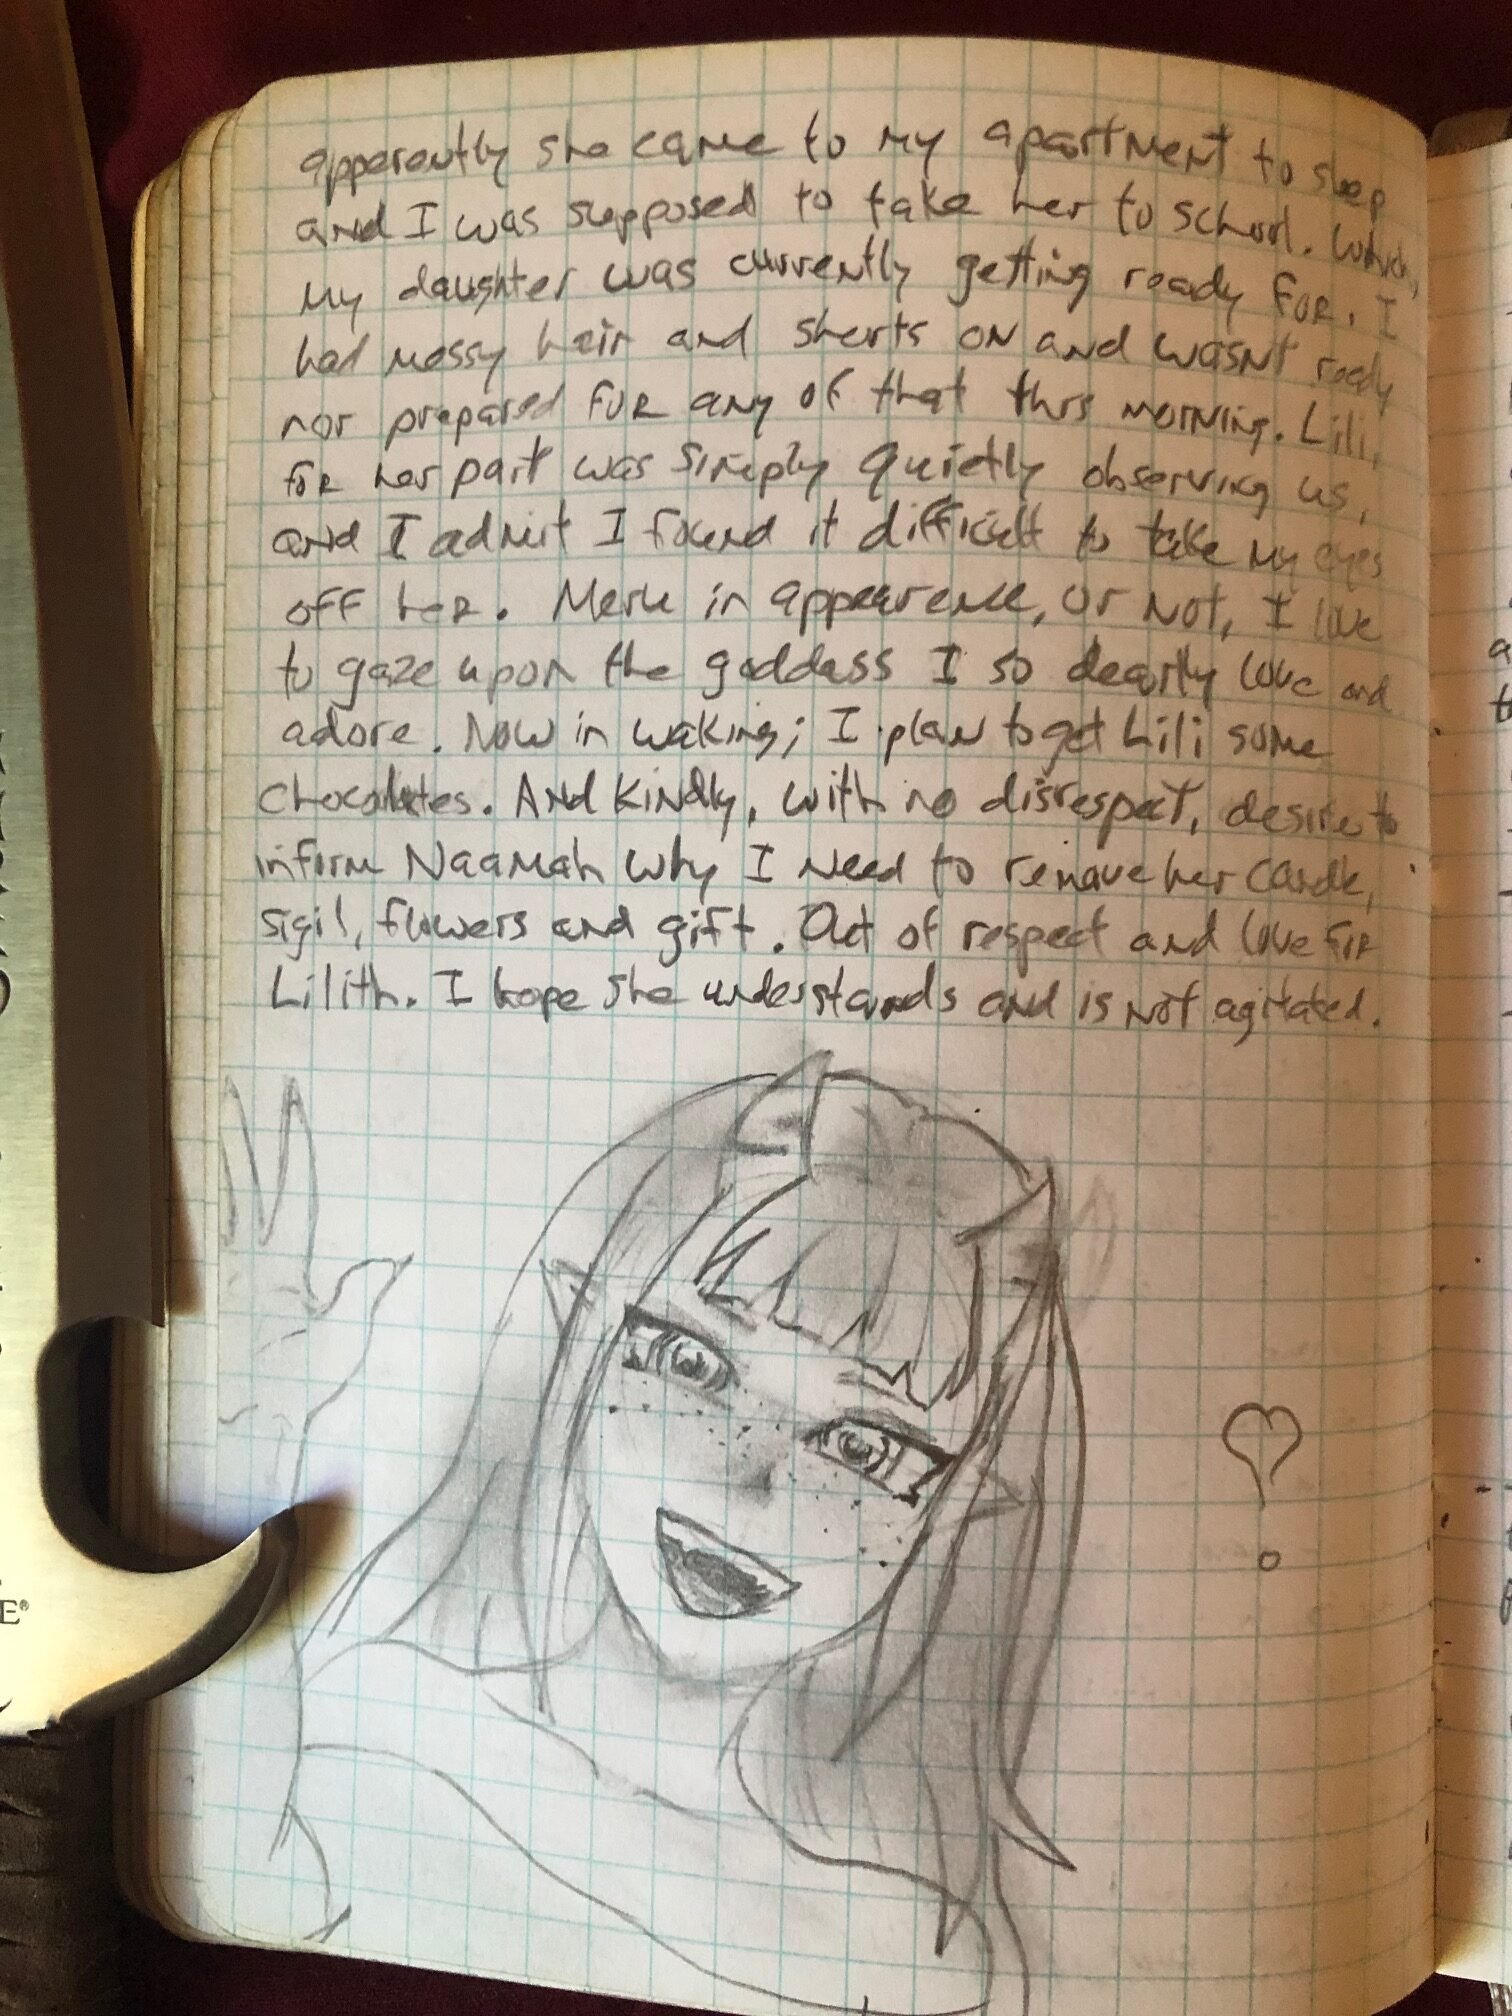 apperently she came to my apartment to sleep
and I was supposed to take her to school. Which,
my daughter was currently getting ready for. I
had messy hair and shorts on and wasnt ready
nor prepared for any of that this morning. Lili,
for her part was simply quietly observing us,
and I admit I found it difficult to take my eyes
off her. Mere in appearence, or not, I love
to gaze upon the goddess I so dearly love and
adore. Now in waking; I plan to get Lili some
chocolates. And kindly, with no disrespect, desire to
inform Naamah why I need to remove her candle,
sigil, flowers and gift. Out of respect and love for
Lilith. I hope she understands and is not agitated.
E®